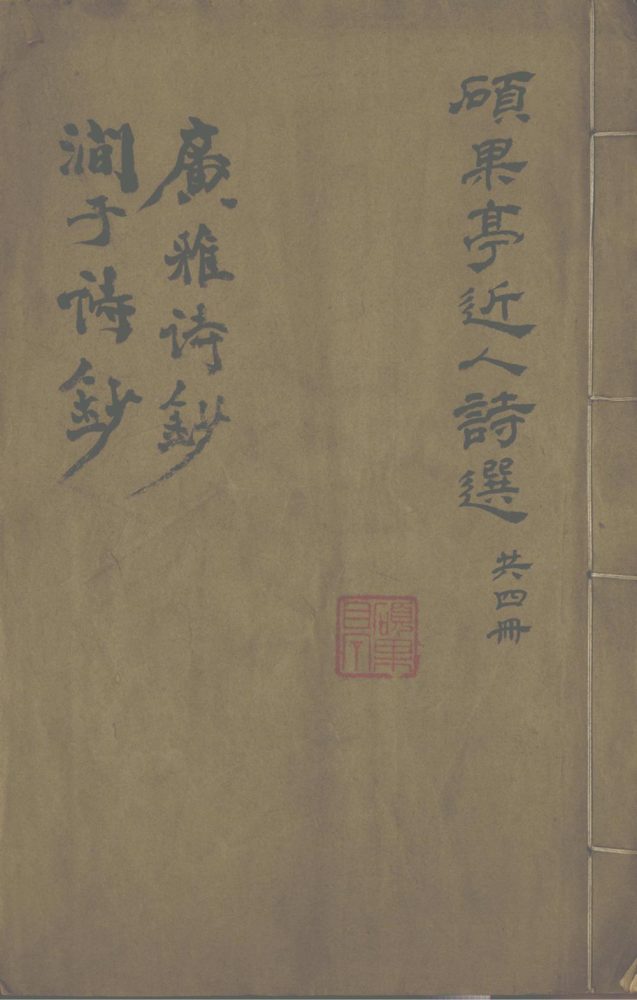 碩果亭近人詩選 共四冊
廣雅詩鈔
澗于詩鈔
碩果